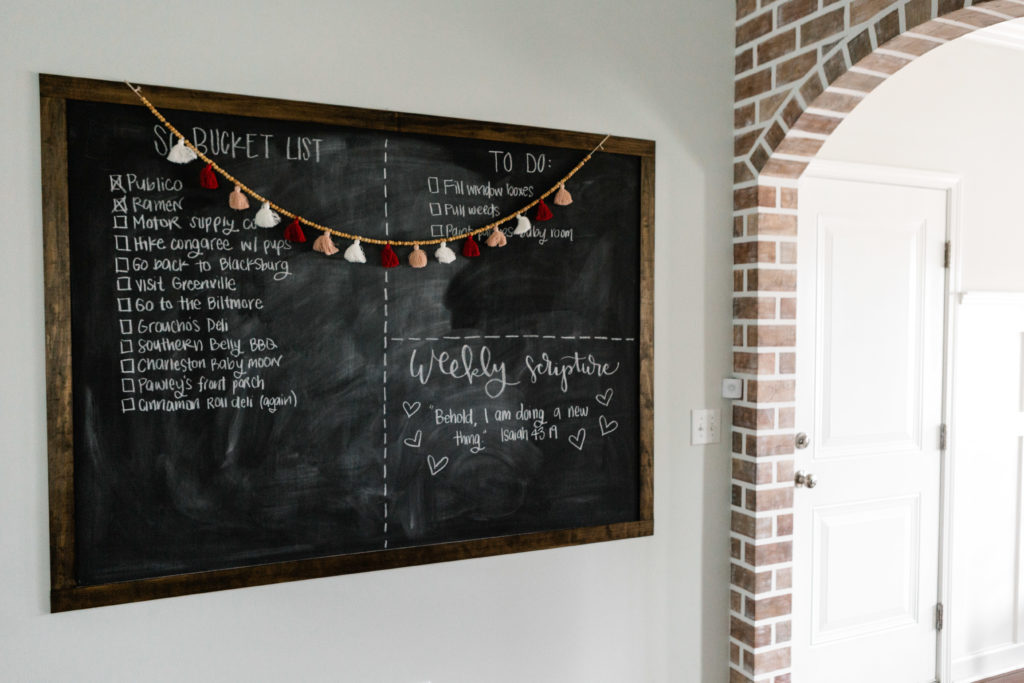 SC BUCKET LIST
Publico
Ramen
Motor supply co
Hike congaree w/ pups
Go back to Blacksburg
Visit Greenville
Go to the Biltmore
Groucho's Deli
Southern Belly BBQ
Charleston Baby moon
Pawley's front porch
Cinnamon Roll deli (again)
TO DO:
Fill window boxes
Pull weeds
Paint baby room
Weekly scripture
"Behold, I am doing a new
thing." Isaiah 43:19